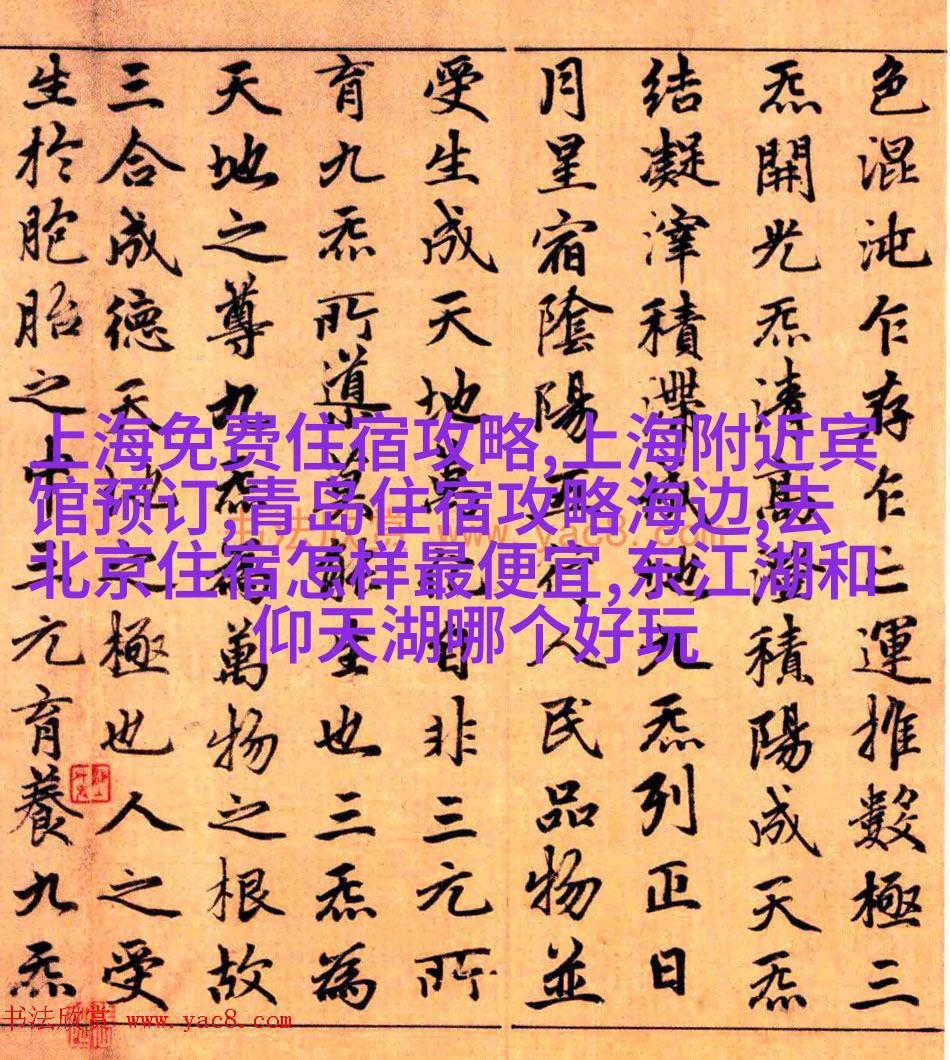 色混沌乍存乍亡運推數極三
炁開光炁清高澄積陽成天炁
結凝滓積滯成地九炁列正日
月星宿陰陽五行人民品物並
受生成天地萬化自非三元所
育九炁所導莫能生也三炁為
天地之尊九炁為萬物之根故
三合成德天地之極也人之受
生於胞胎之中三元育養九炁
上海免费住宿攻略,上海附近宾
馆预订,青岛住宿攻略海边,去
北京住宿怎样最便宜,东江湖和
仰天湖哪个好玩
书法欣赏 www.yac8.com
书法欣赏 www.yac8.com